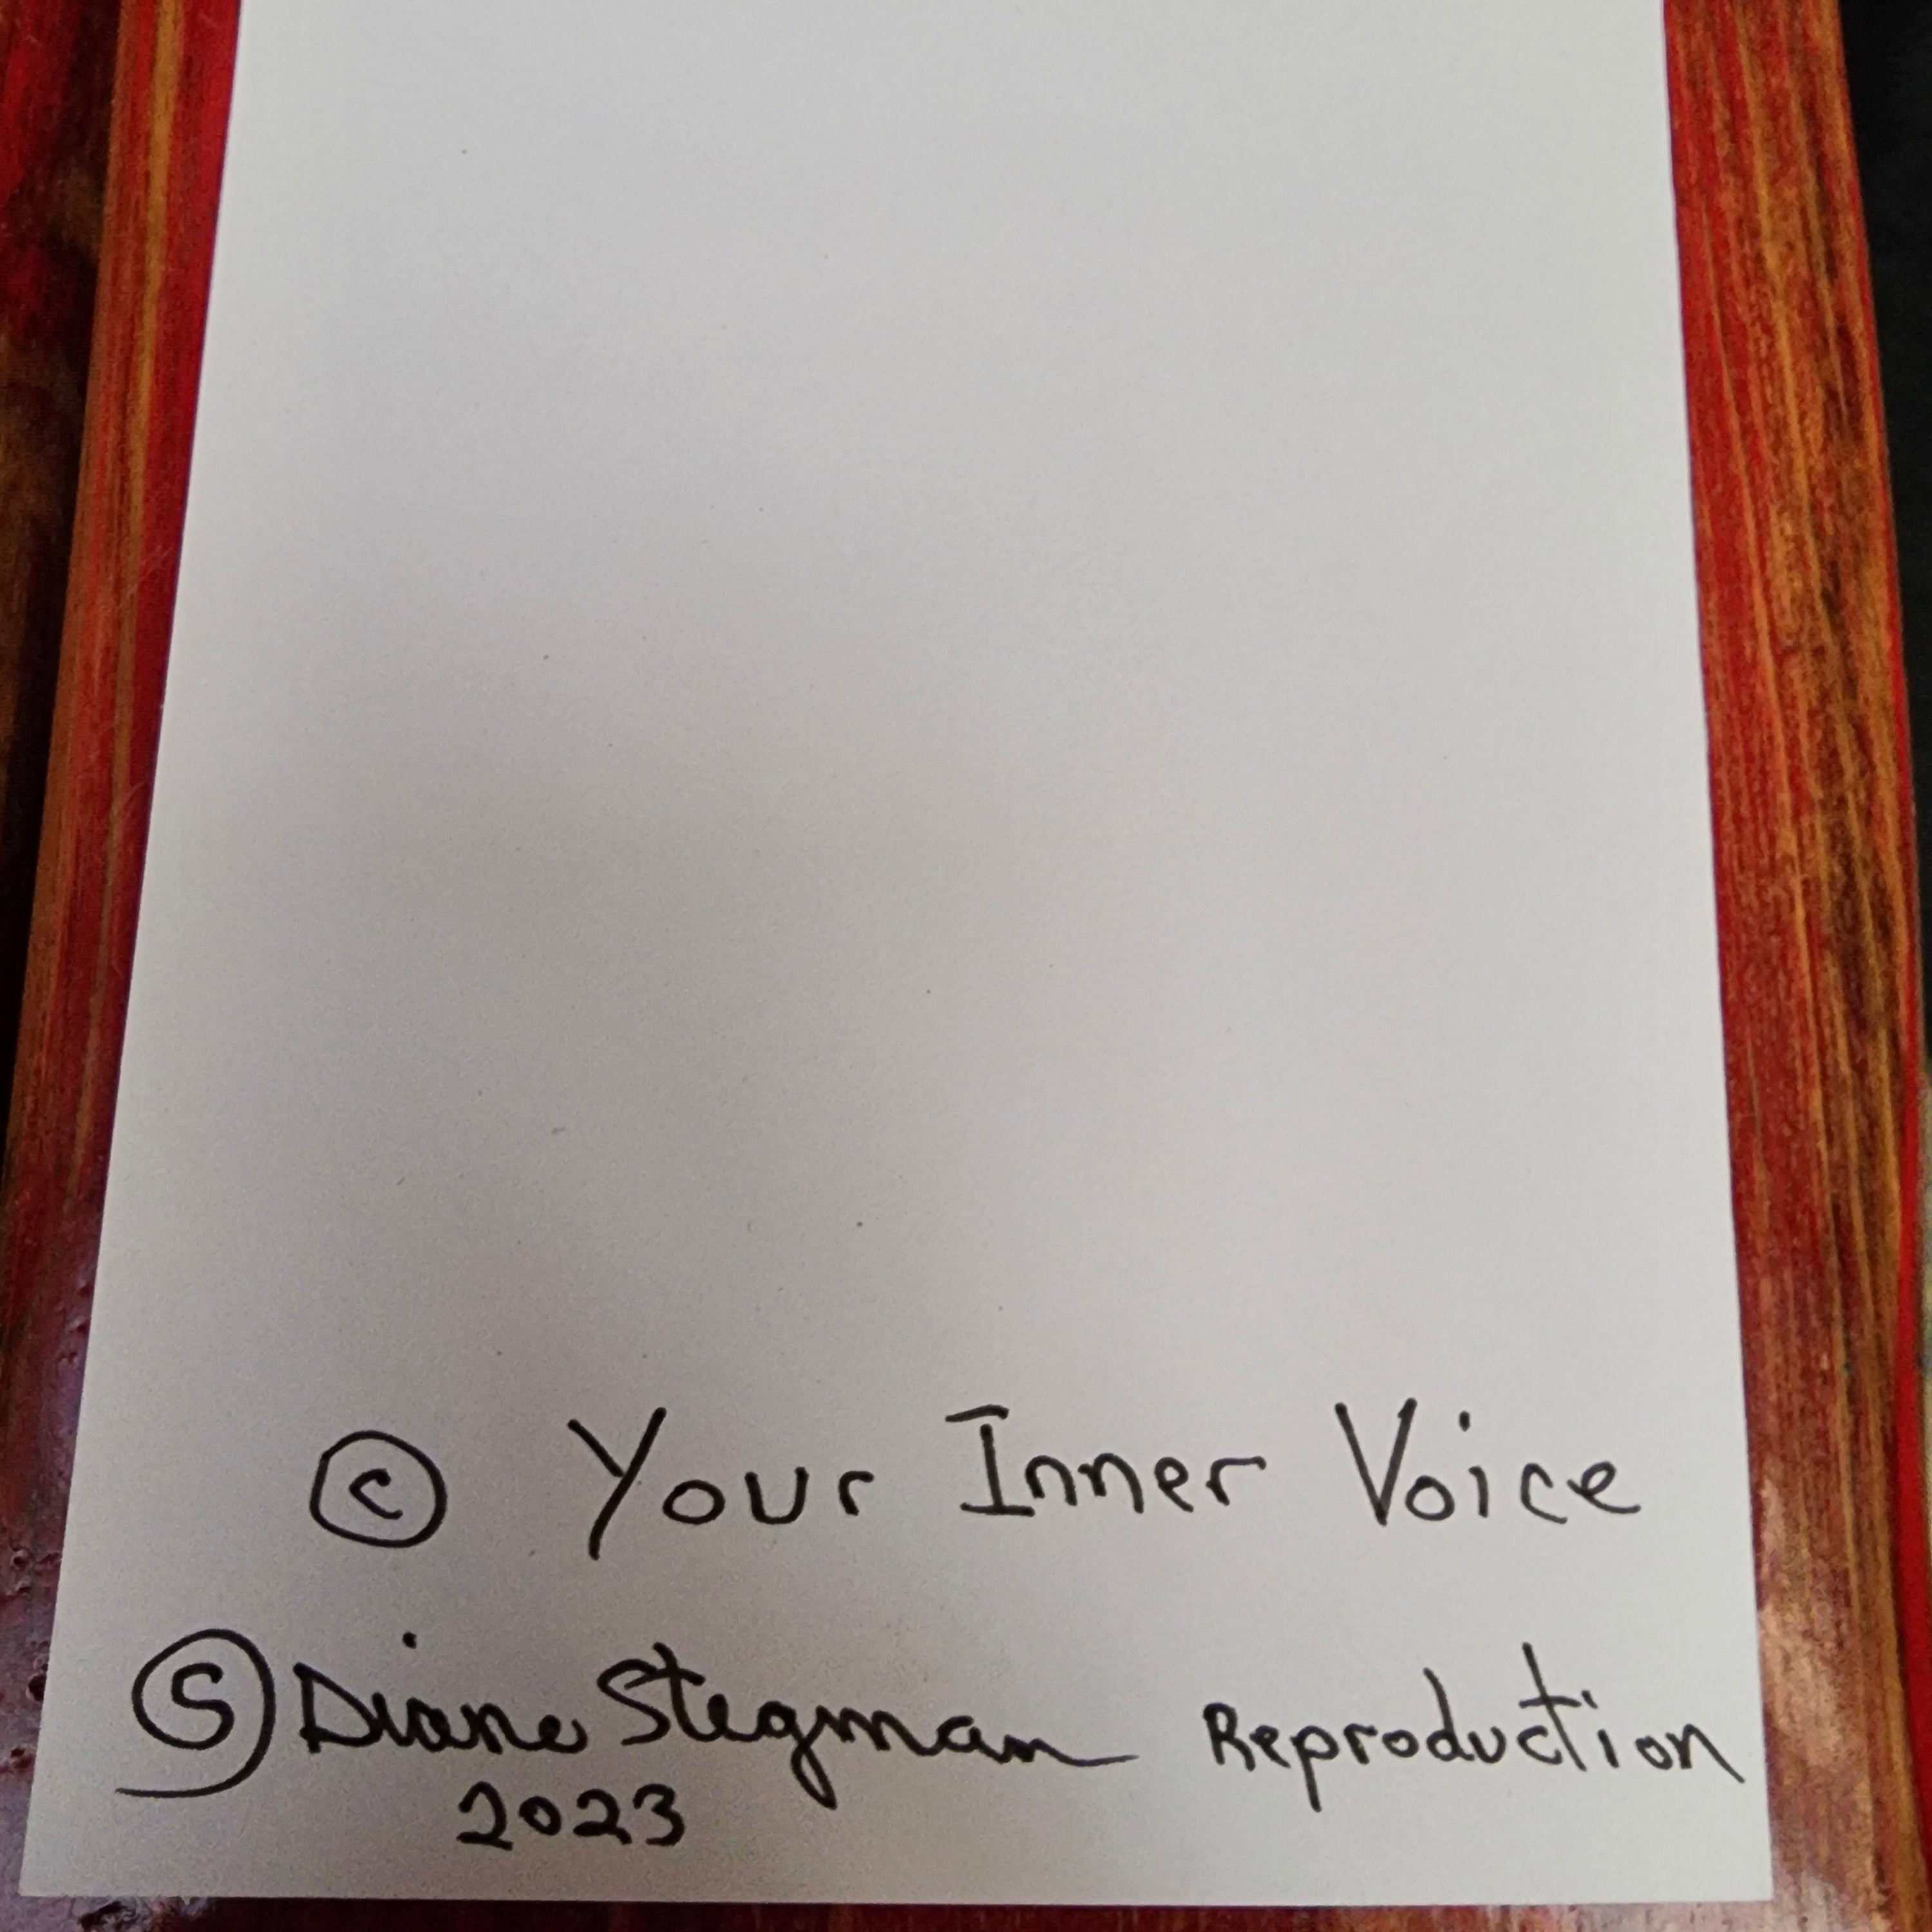 © Your Inner Voice
Ⓢ Diane Stegman Reproduction
2023